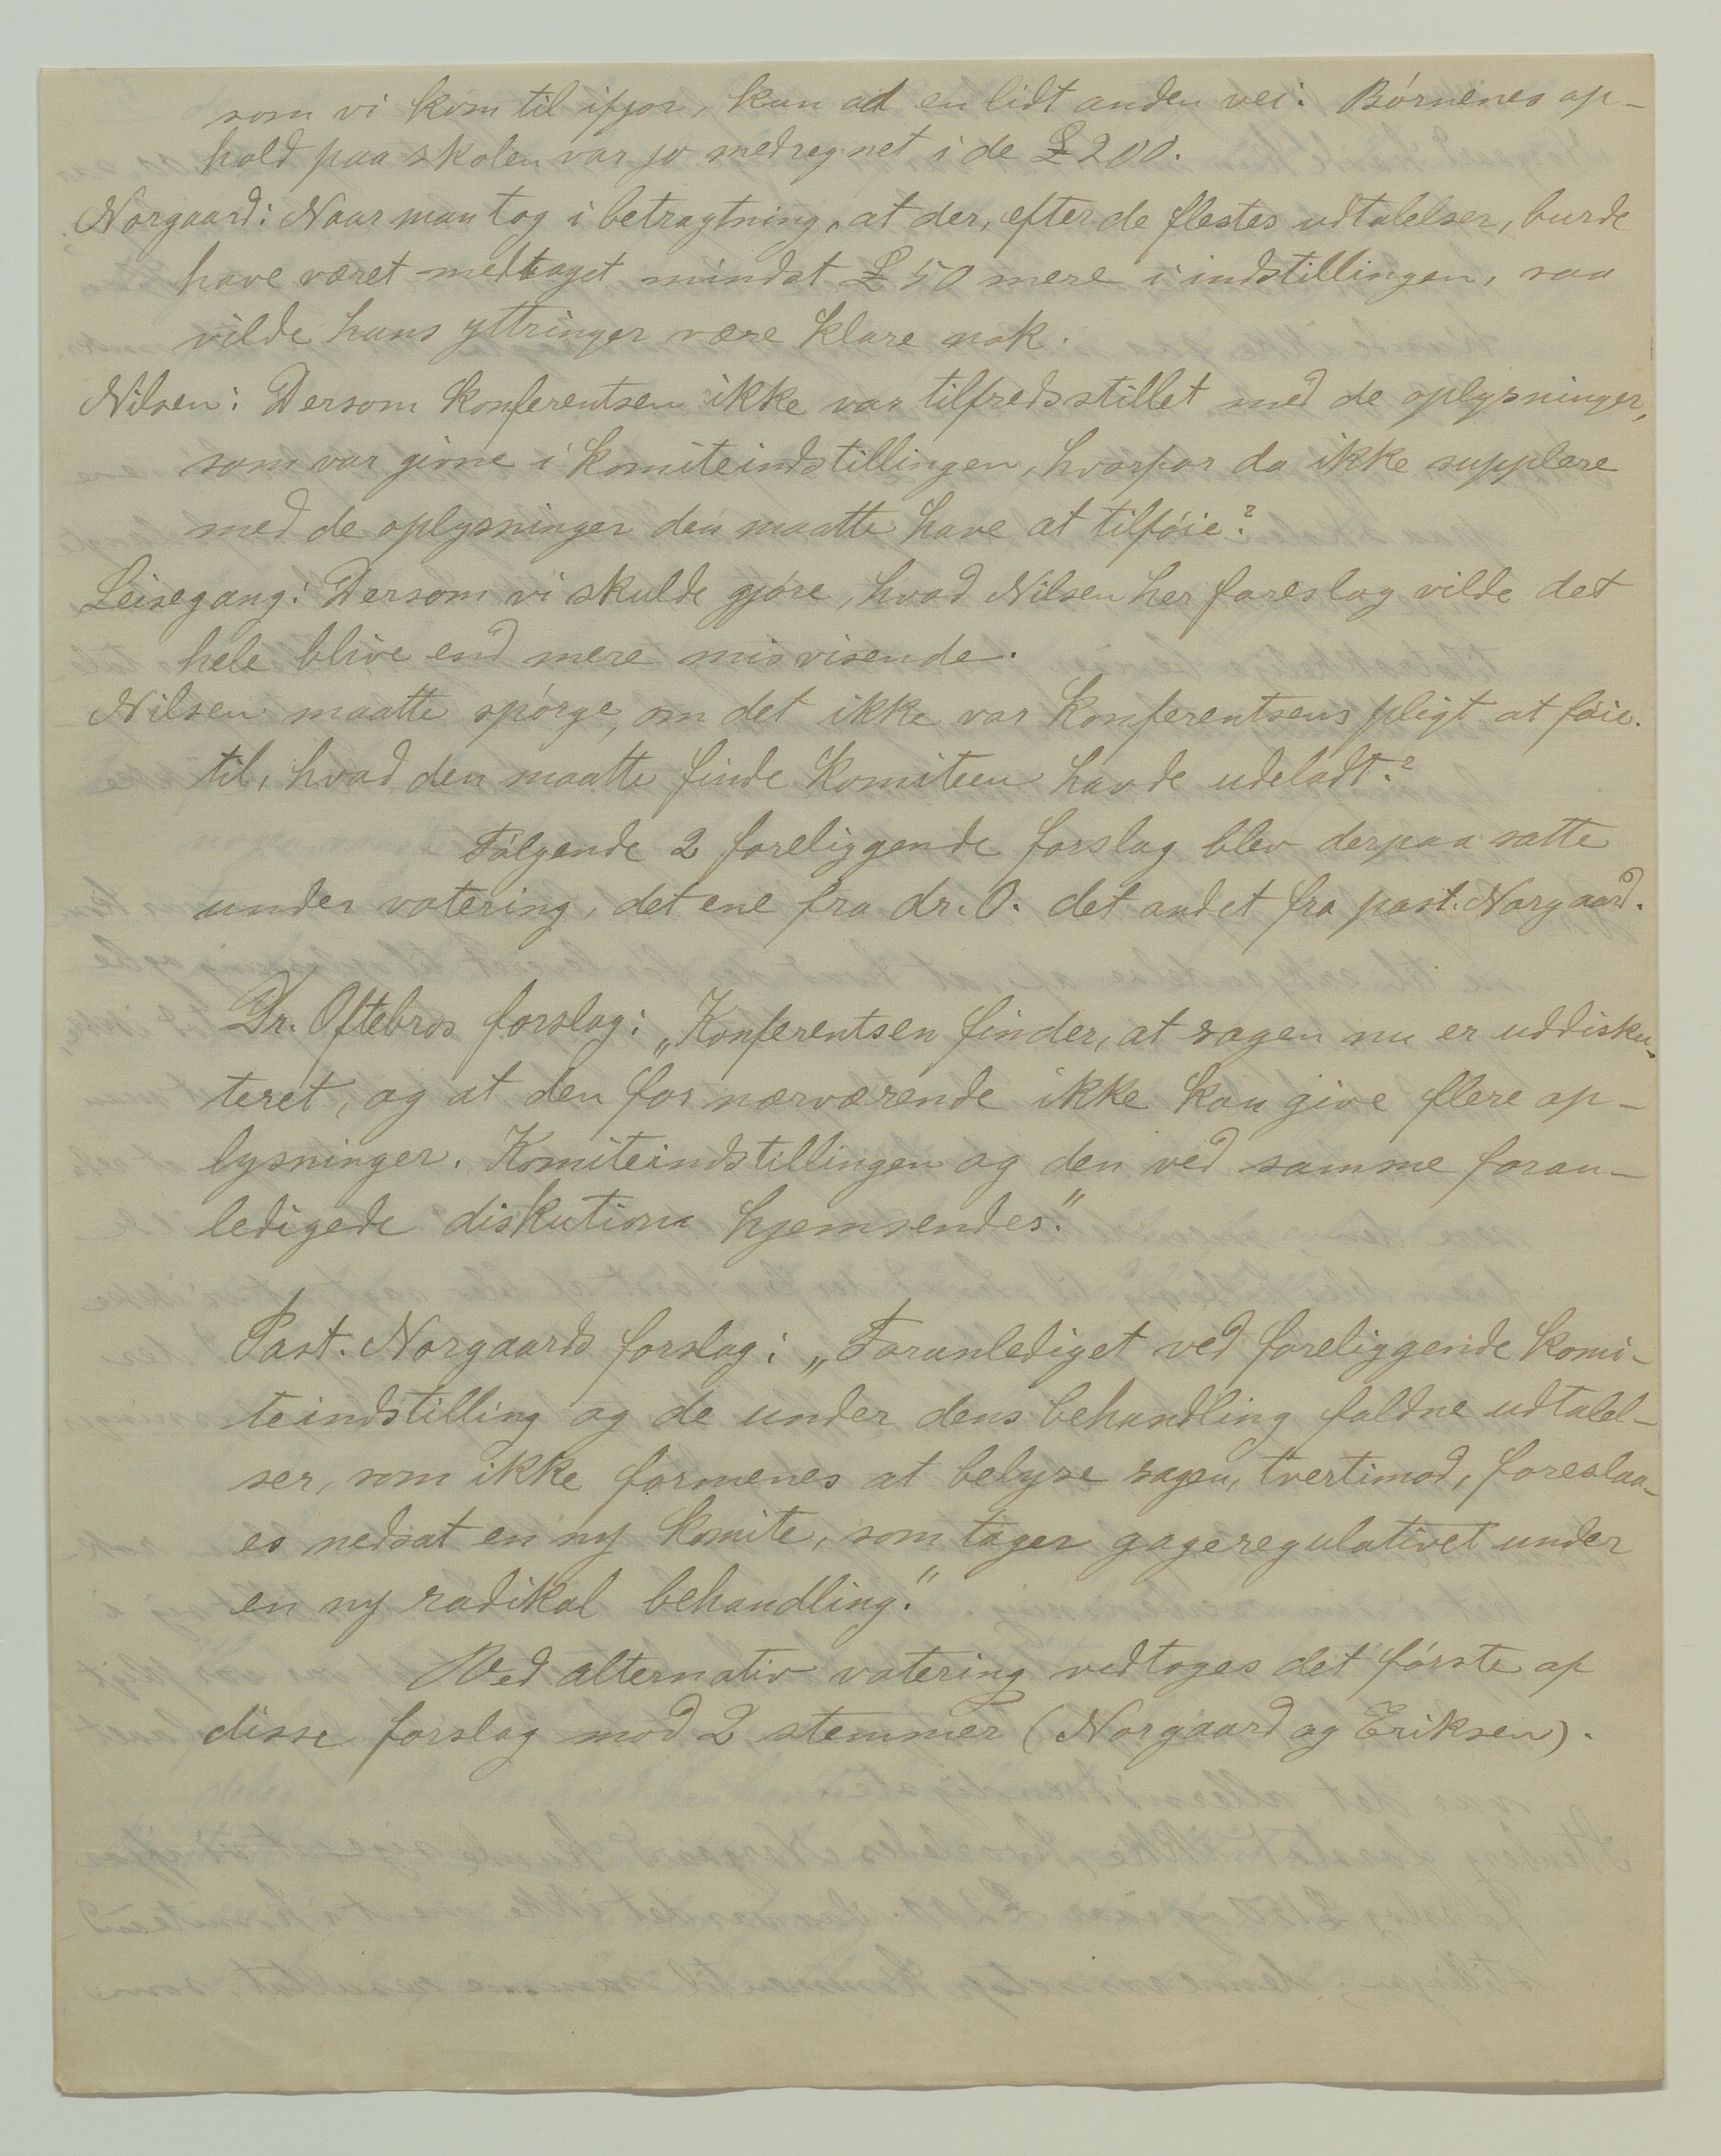 som vi kom til ifjor, kun ad en lidt anden vei: Børnenes op-
hold paa skolen var jo medregnet i de £200.
Norgaard: Naar man tog i betragtning, at der, efter de flestes udtalelser, burde
have været medtaget mindst £50 mere i indstillingen, saa
vilde hans yttringer være klare nok.
Nilsen: Dersom konferentsen ikke var tilfredsstillet med de oplysninger,
som var givne i komiteindstillingen, hvorfor da ikke supplere
med de oplysninger den maatte have at tilføie?
Leisegang: Dersom vi skulde gjøre, hvad Nilsen her foreslog vilde det
hele blive end mere misvisende.
Nilsen maatte spørge, om det ikke var konferentsens pligt at føie
til, hvad den maatte finde komiteen havde udeladt?
Følgende 2 foreliggende forslag blev derpaa satte
under votering, det ene fra dr. O. det andet fra past. Norgaard.
Dr. Oftebros forslag: „Konferentsen finder, at sagen nu er uddisku-
teret, og at den for nærværende ikke kan give flere op-
lysninger. Komiteindstillingen og den ved samme foran-
ledigede diskution hjemsendes."
Past. Norgaards forslag: „Foranlediget ved foreliggende komi-
teindstilling og de under dens behandling faldne udtalel-
ser, som ikke formenes at belyse sagen, tvertimod, foreslaa-
es nedsat en ny komite, som tager gageregulativet under
en ny radikal behandling."
Ved alternativ votering vedtoges det første af
disse forslag mod 2 stemmer (Norgaard og Eriksen).